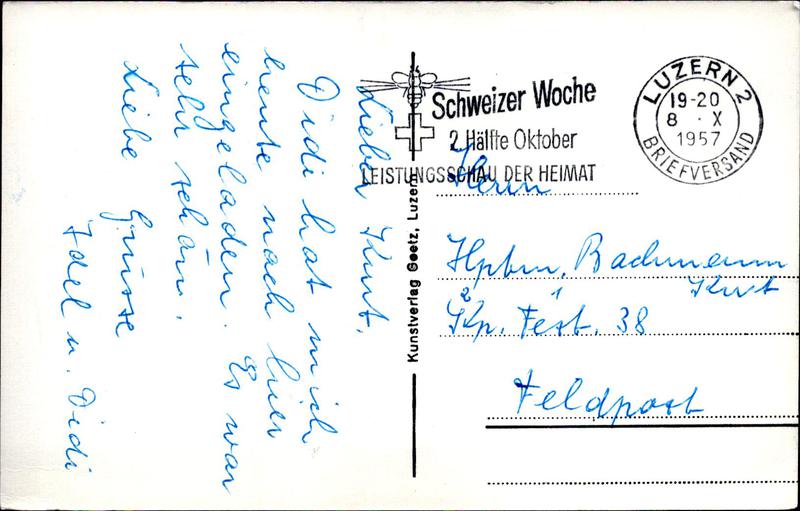 Lieber Kurt.
Didi hat mich
heute nach hier
eingeladen. Es war
sehr schön.
Liebe Grüsse
Idel u. Didi
Kunstverlag Goetz, Luzern
Schweizer Woche
2. Hälfte Oktober
LEISTUNGSSCHAU DER HEIMAT
LUZERN 2
19-20
8 · X
1957
BRIEFVERSAND
Herrn
Hptm. Bachmann
Kurt
Fest. 38
Feldpost